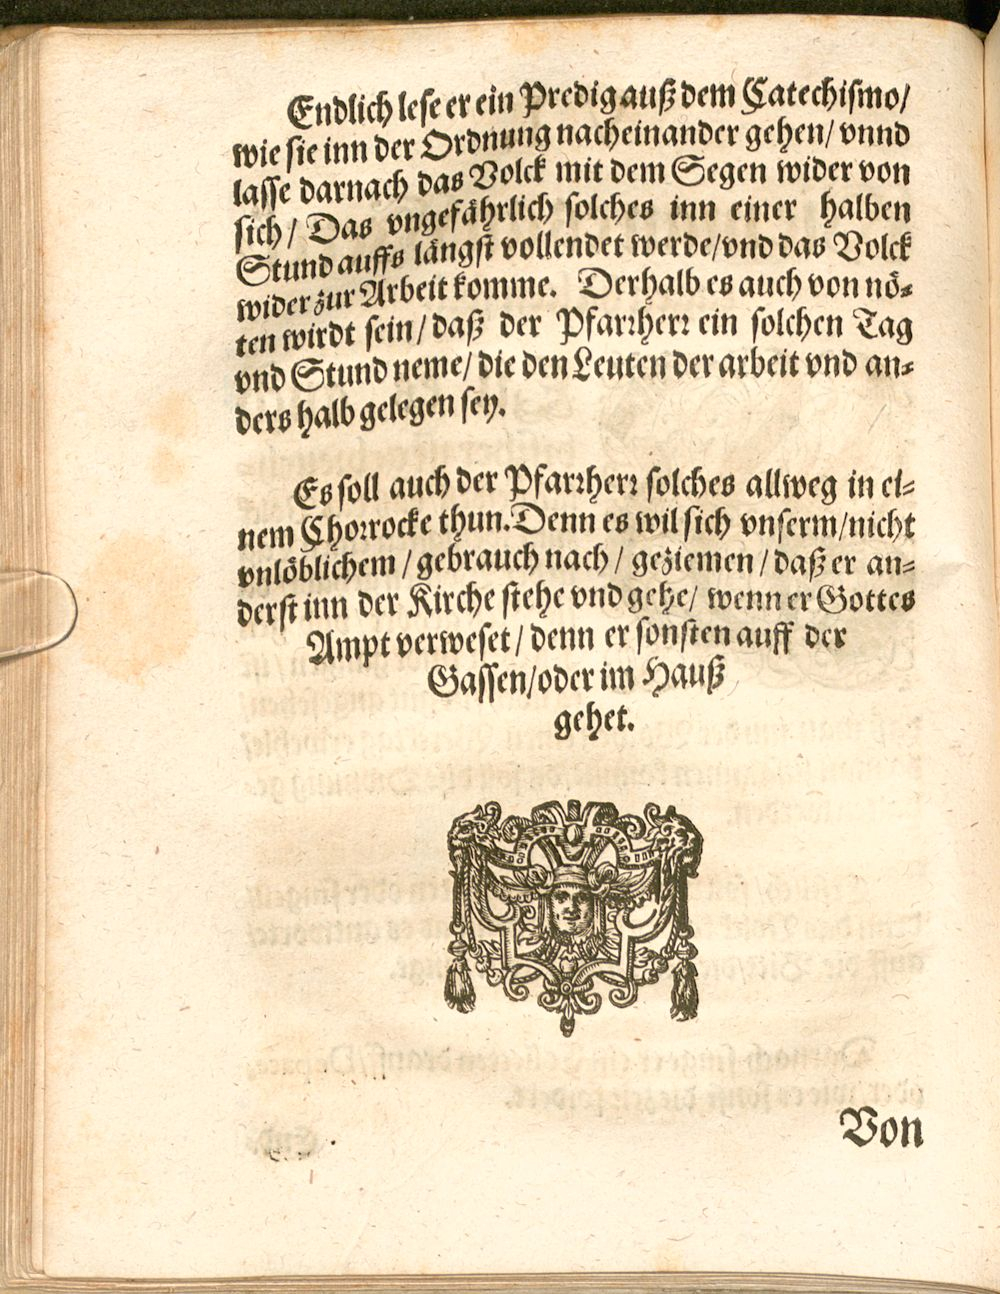 Endlich lese er ein Predig auß dem Catechismo/
wie sie inn der Ordnung nacheinander gehen/ vnnd
lasse darnach das Volck mit dem Segen wider von
sich/ Das vngefährlich solches inn einer halben
Stund auffs längst vollendet werde/vnd das Volck
wider zur Arbeit komme. Derhalb es auch von nö-
ten wirdt sein/ daß der Pfarrherr ein solchen Tag
vnd Stund neme/ die den Leuten der arbeit vnd an-
ders halb gelegen sey.
Es soll auch der Pfarrherr solches allweg in ei-
nem Chorrocke thun. Denn es wil sich vnserm/nicht
vnlöblichem/ gebrauch nach/ geziemen/ daß er an-
derst inn der Kirche stehe vnd gehe/ wenn er Gottes
Ampt verweset/ denn er sonsten auff der
Gassen/oder im Hauß
gehet.
Von